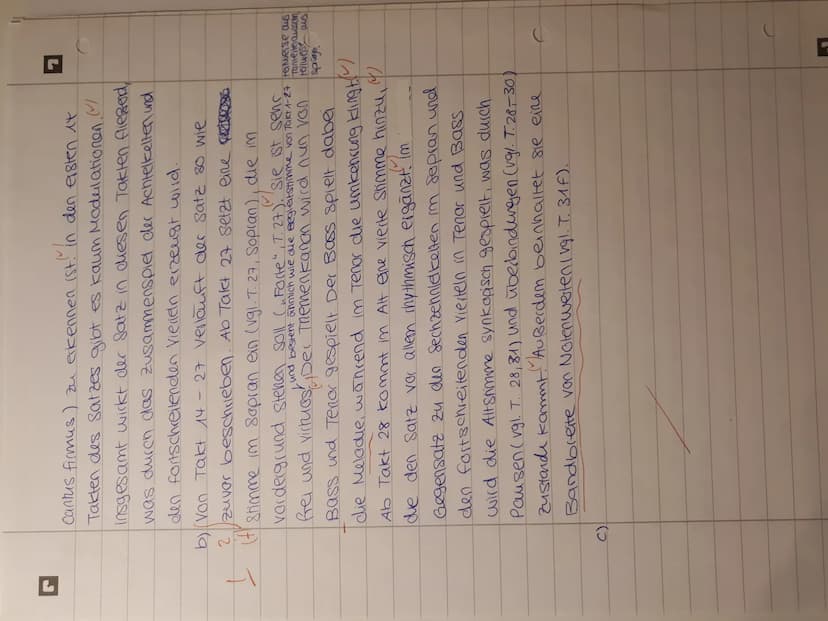 Cantus firmus) zu erkennen ist. In den ersten 14
Takten des Satzes gibt es kaum Modulationen.
Insgesamt wirkt der Satz in diesen Takten fließend,
was durch das zusammenspiel der Achtelketten und
den fortschreitenden Vierteln erzeugt wird.
b) Von Takt 14 - 27 verläuft der Satz so wie
zuvor beschrieben. Ab Takt 27 setzt eine
Stimme im Sopran ein (vgl. T. 27, Sopran), die im
Vordergrund stehen soll („Forte", T. 27). Sie ist sehr
und besteht ähnlich wie die Begleitstimme von Takt 1-27 teilweise aus
Tonleiterausschnitten
teilweise aus
frei und virtuos. Der Themenkanon wird nun von
Bass und Tenor gespielt. Der Bass spielt dabei
die Melodie, während im Tenor die Umkehrung klingt.
Ab Takt 28 kommt im Alt eine vierte Stimme hinzu,
die den Satz vor allem rhythmisch ergänzt. Im
Gegensatz zu den Sechzehntelketten im Sopran und
den fortschreitenden Vierteln in Tenor und Bass
wird die Altstimme synkopisch gespielt, was durch
Pausen (vgl. T. 28, 31) und Überbindungen (vgl. T. 28-30)
zustande kommt. Außerdem beinhaltet sie eine
Bandbreite von Notenwerten (vgl. T. 31f).
c)